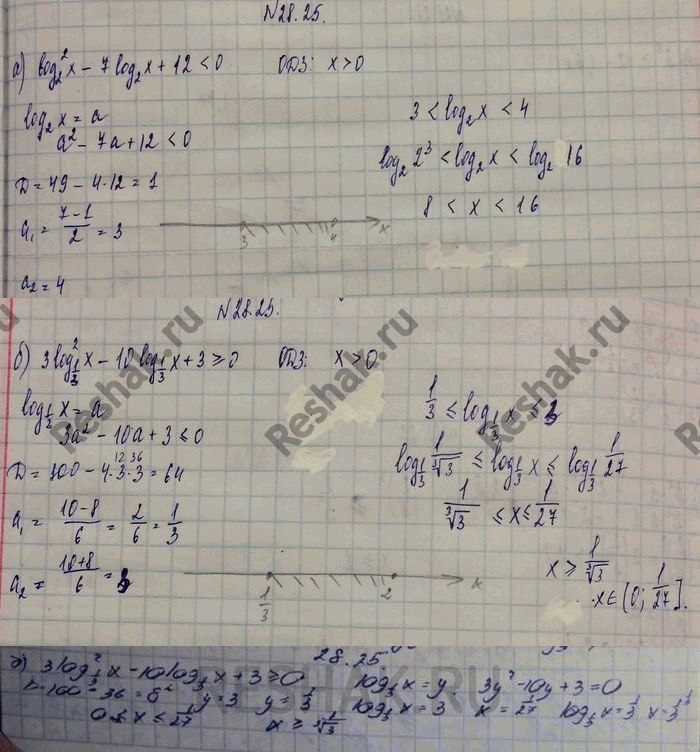 N28.25.
а) log₂²x − 7log₂x + 12 < 0   ОДЗ: x > 0
log₂x = a
a² − 7a + 12 < 0
D = 49 − 4·12 = 1
a₁ = (7−1)/2 = 3
a₂ = 4
3 4 x
3 < log₂x < 4
log₂2³ < log₂x < log₂16
8 < x < 16
N28.25.
б) 3log²_{1/3}x − 10log_{1/3}x + 3 ≥ 0   ОДЗ: x > 0
log_{1/3}x = a
3a² − 10a + 3 ≤ 0
12 36
D = 100 − 4·3·3 = 64
a₁ = (10−8)/6 = 2/6 = 1/3
a₂ = (10+8)/6 = 3
1/3 2 x
1/3 ≤ log_{1/3}x ≤ 3
log_{1/3} 1/∛3 ≤ log_{1/3}x ≤ log_{1/3} 1/27
1/∛3 ≤ x ≤ 1/27
x ≥ 1/∛3
x ∈ (0; 1/27].
Reshak.ru
Reshak.ru
RESHAK.RU
28.25
3log²_{1/3}x − 10log_{1/3}x + 3 ≥ 0   log_{1/3}x = y   3y² − 10y + 3 = 0
D = 100 − 36 = 8²   y = 3   y = 1/3   log_{1/3}x = 3   x = 1/27   log_{1/3}x = 1/3
0 < x ≤ 1/27   x ≥ 1/∛3